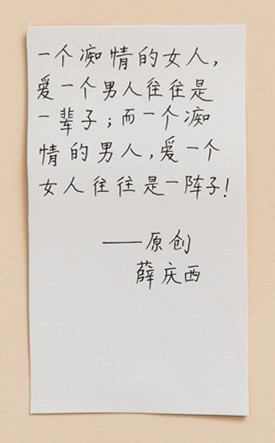 一个痴情的女人，
爱一个男人往往是
一辈子；而一个痴
情的男人，爱一个
女人往往是一阵子！
——原创
薛庆西